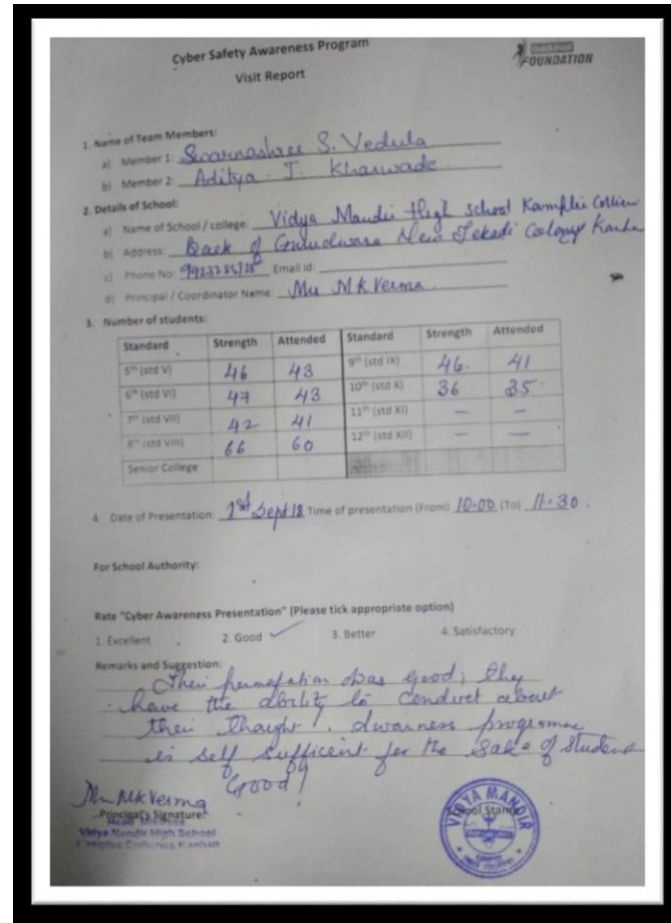 Cyber Safety Awareness Program
Visit Report
Quick Heal
FOUNDATION
1. Name of Team Members:
a) Member 1: Swarnashree S. Vedula
b) Member 2: Aditya J. Kharwade
2. Details of School:
a) Name of School / college: Vidya Mandir High School Kamplee
b) Address: Back of New Tekadi Colony
c) Phone No: Email id:
d) Principal / Coordinator Name: M K Verma
3. Number of students:
Standard Strength Attended Standard Strength Attended
5th (std V) 46 43 9th (std IX) 46. 41
6th (std VI) 47 43 10th (std X) 36 35.
7th (std VII) 42 41 11th (std XI) — —
8th (std VIII) 66 60 12th (std XII) — —
Senior College
4. Date of Presentation: 1st Sept 18 Time of presentation (From) 10.00 (To) 11.30.
For School Authority:
Rate "Cyber Awareness Presentation" (Please tick appropriate option)
1. Excellent 2. Good ✓ 3. Better 4. Satisfactory
Remarks and Suggestion:
Their was good, they
have the ability to conduct about
their thought. programme
is self sufficent for the sake of student
Good!
M K Verma
Principal's Signature:
Vidya Mandir High School
School Stamp
VIDYA MANDIR